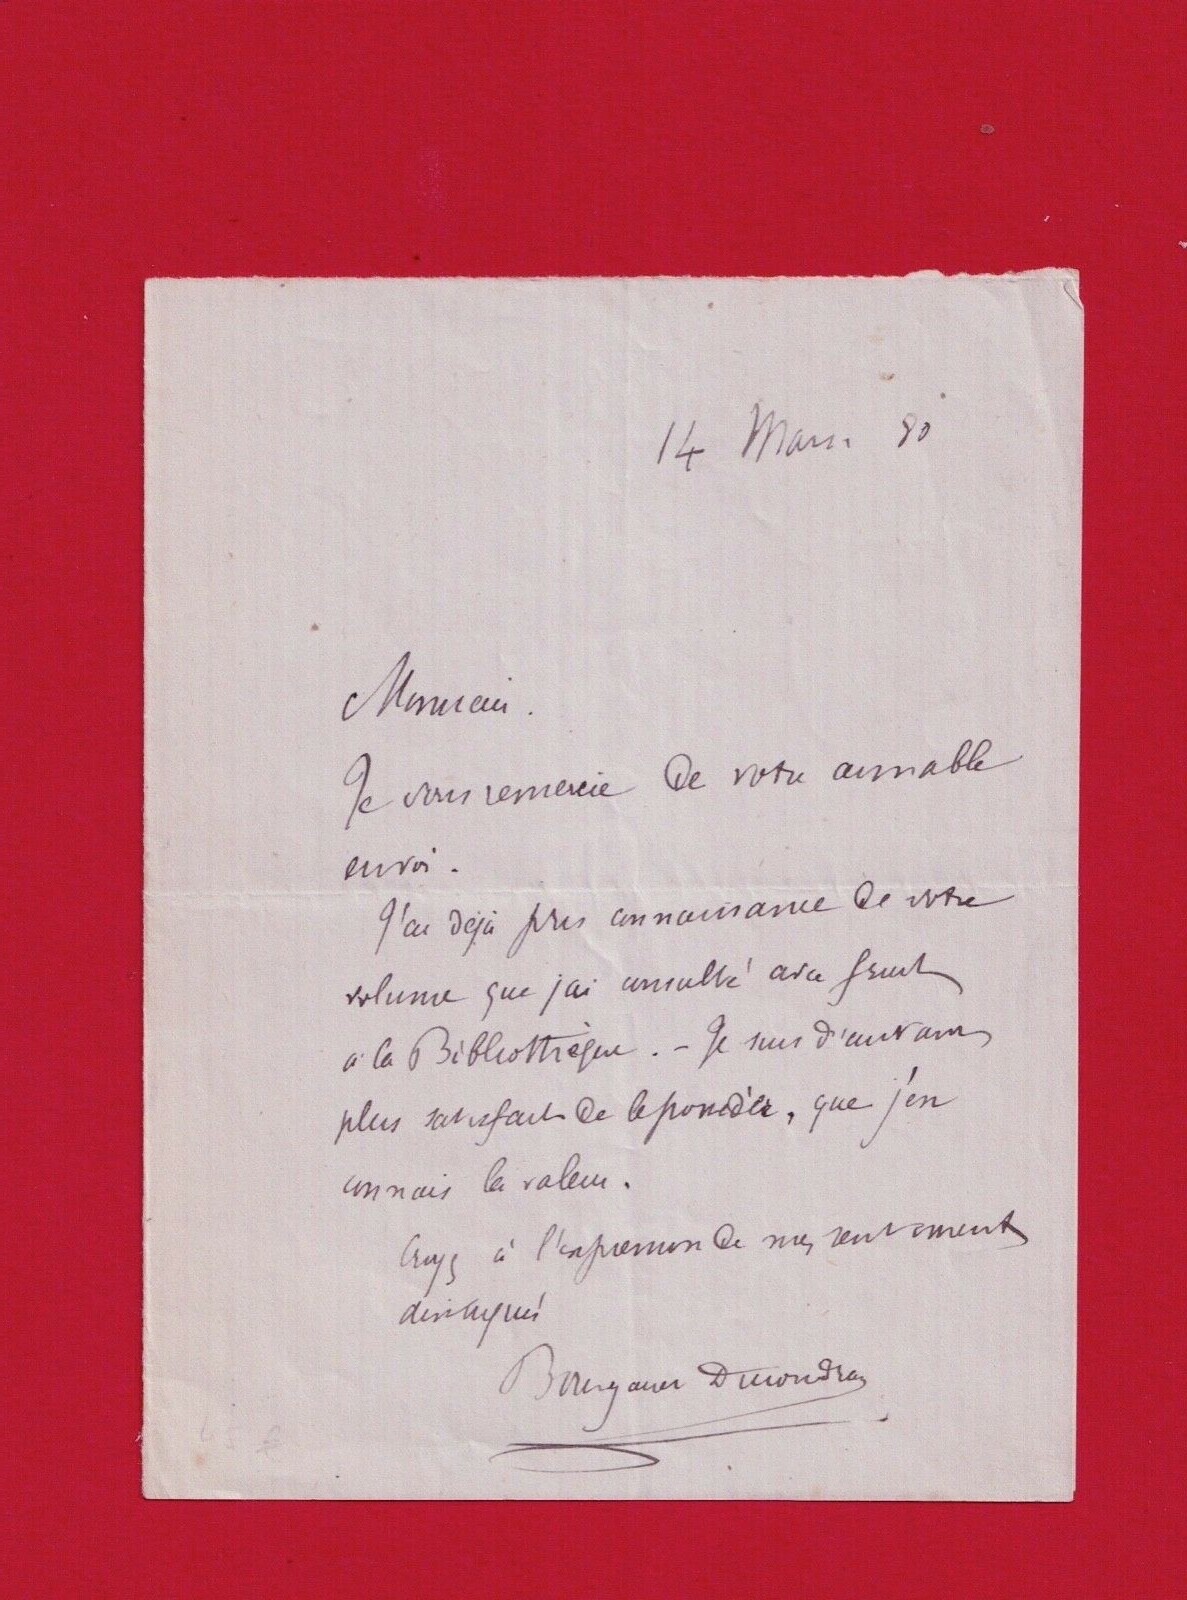 14 Mars 80
Monsieur.
Je vous remercie de votre aimable
envoi.
J'ai déjà pris connaissance de votre
volume que j'ai consulté avec fruit
à la Bibliothèque. - Je suis d'autant
plus satisfait de le posséder, que j'en
connais la valeur.
Croyez à l'expression de mes sentiments
distingués
Bourgault Ducoudray